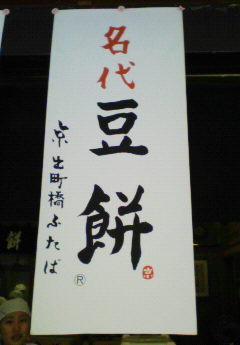 名代
豆餅
®
京出町橋ふたば
餅